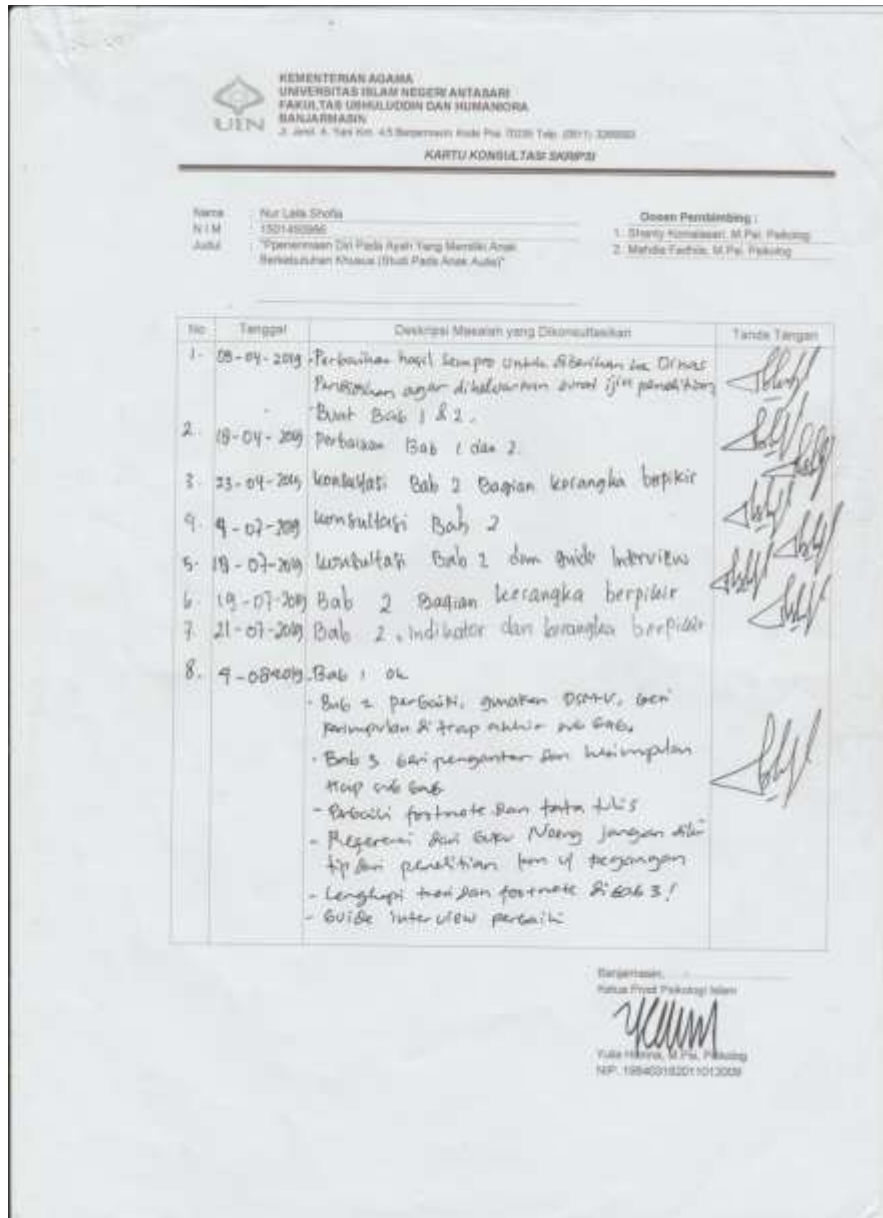 UIN
KEMENTERIAN AGAMA
UNIVERSITAS ISLAM NEGERI ANTASARI
FAKULTAS USHULUDDIN DAN HUMANIORA
BANJARMASIN
Jl. Jend. A. Yani Km. 4,5 Banjarmasin Kode Pos
KARTU KONSULTASI SKRIPSI
Nama : Nur Laila Shofia
N I M :
Judul : Diri Pada Ayah Yang Memiliki Anak
Berkebutuhan Khusus (Studi Pada Anak Autis)"
Dosen Pembimbing :
1. Shanty Komalasari, M.Psi, Psikolog
2. Mahdia Fadhila, M.Psi, Psikolog
No Tanggal Deskripsi Masalah yang Dikonsultasikan Tanda Tangan
1. 09-04-2019 Perbaikan hasil Sempro untuk diberikan ke Dinas
Pendidikan agar dikeluarkan surat ijin penelitian
Buat Bab 1 & 2.
2. 18-04-2019 Perbaikan Bab 1 dan 2
3. 23-04-2019 konsultasi Bab 2 Bagian kerangka berpikir
4. 4-07-2019 konsultasi Bab 2
5. 18-07-2019 konsultasi Bab 2 dan guide Interview
6. 19-07-2019 Bab 2 Bagian kerangka berpikir
7. 21-07-2019 Bab 2, indikator dan kerangka berpikir
8. 4-08-2019 Bab 1 ok
- Bab 2 perbaiki, gunakan DSM-V, beri
kesimpulan di tiap akhir sub bab.
- Bab 3 beri pengantar dan kesimpulan
tiap sub bab
- Perbaiki footnote dan tata tulis
- Referensi dari buku jangan
dari penelitian
- Lengkapi teori dan footnote di bab 3!
- Guide interview perbaiki
Banjarmasin,
Ketua Prodi Psikologi Islam
M.Psi, Psikolog
NIP.